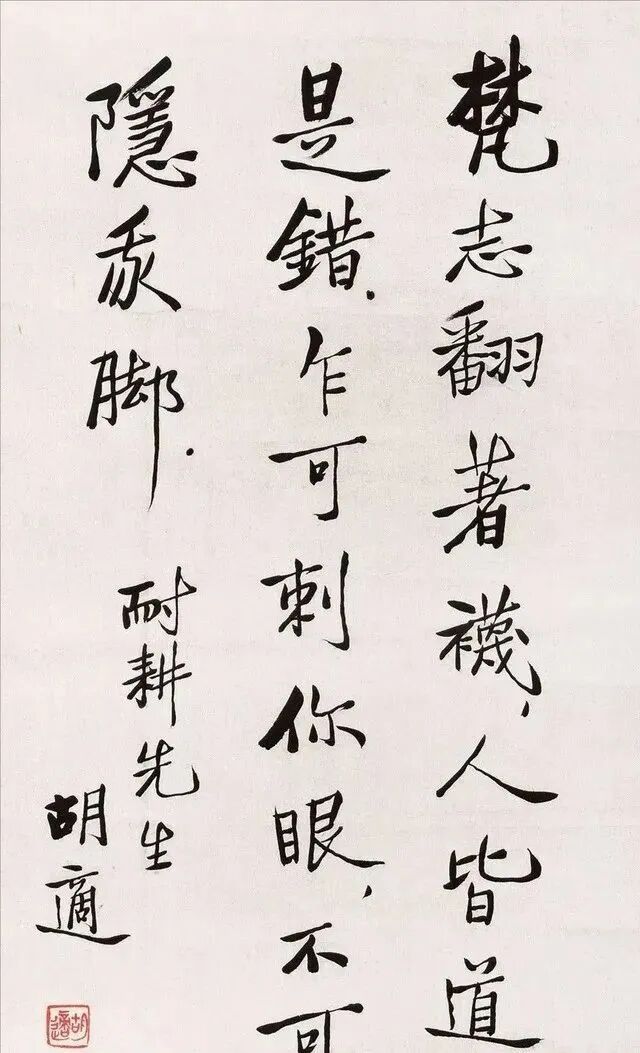 梵志翻著襪，人皆道
是錯．乍可刺你眼，不可
隱我脚．
耐耕先生
胡適
胡適